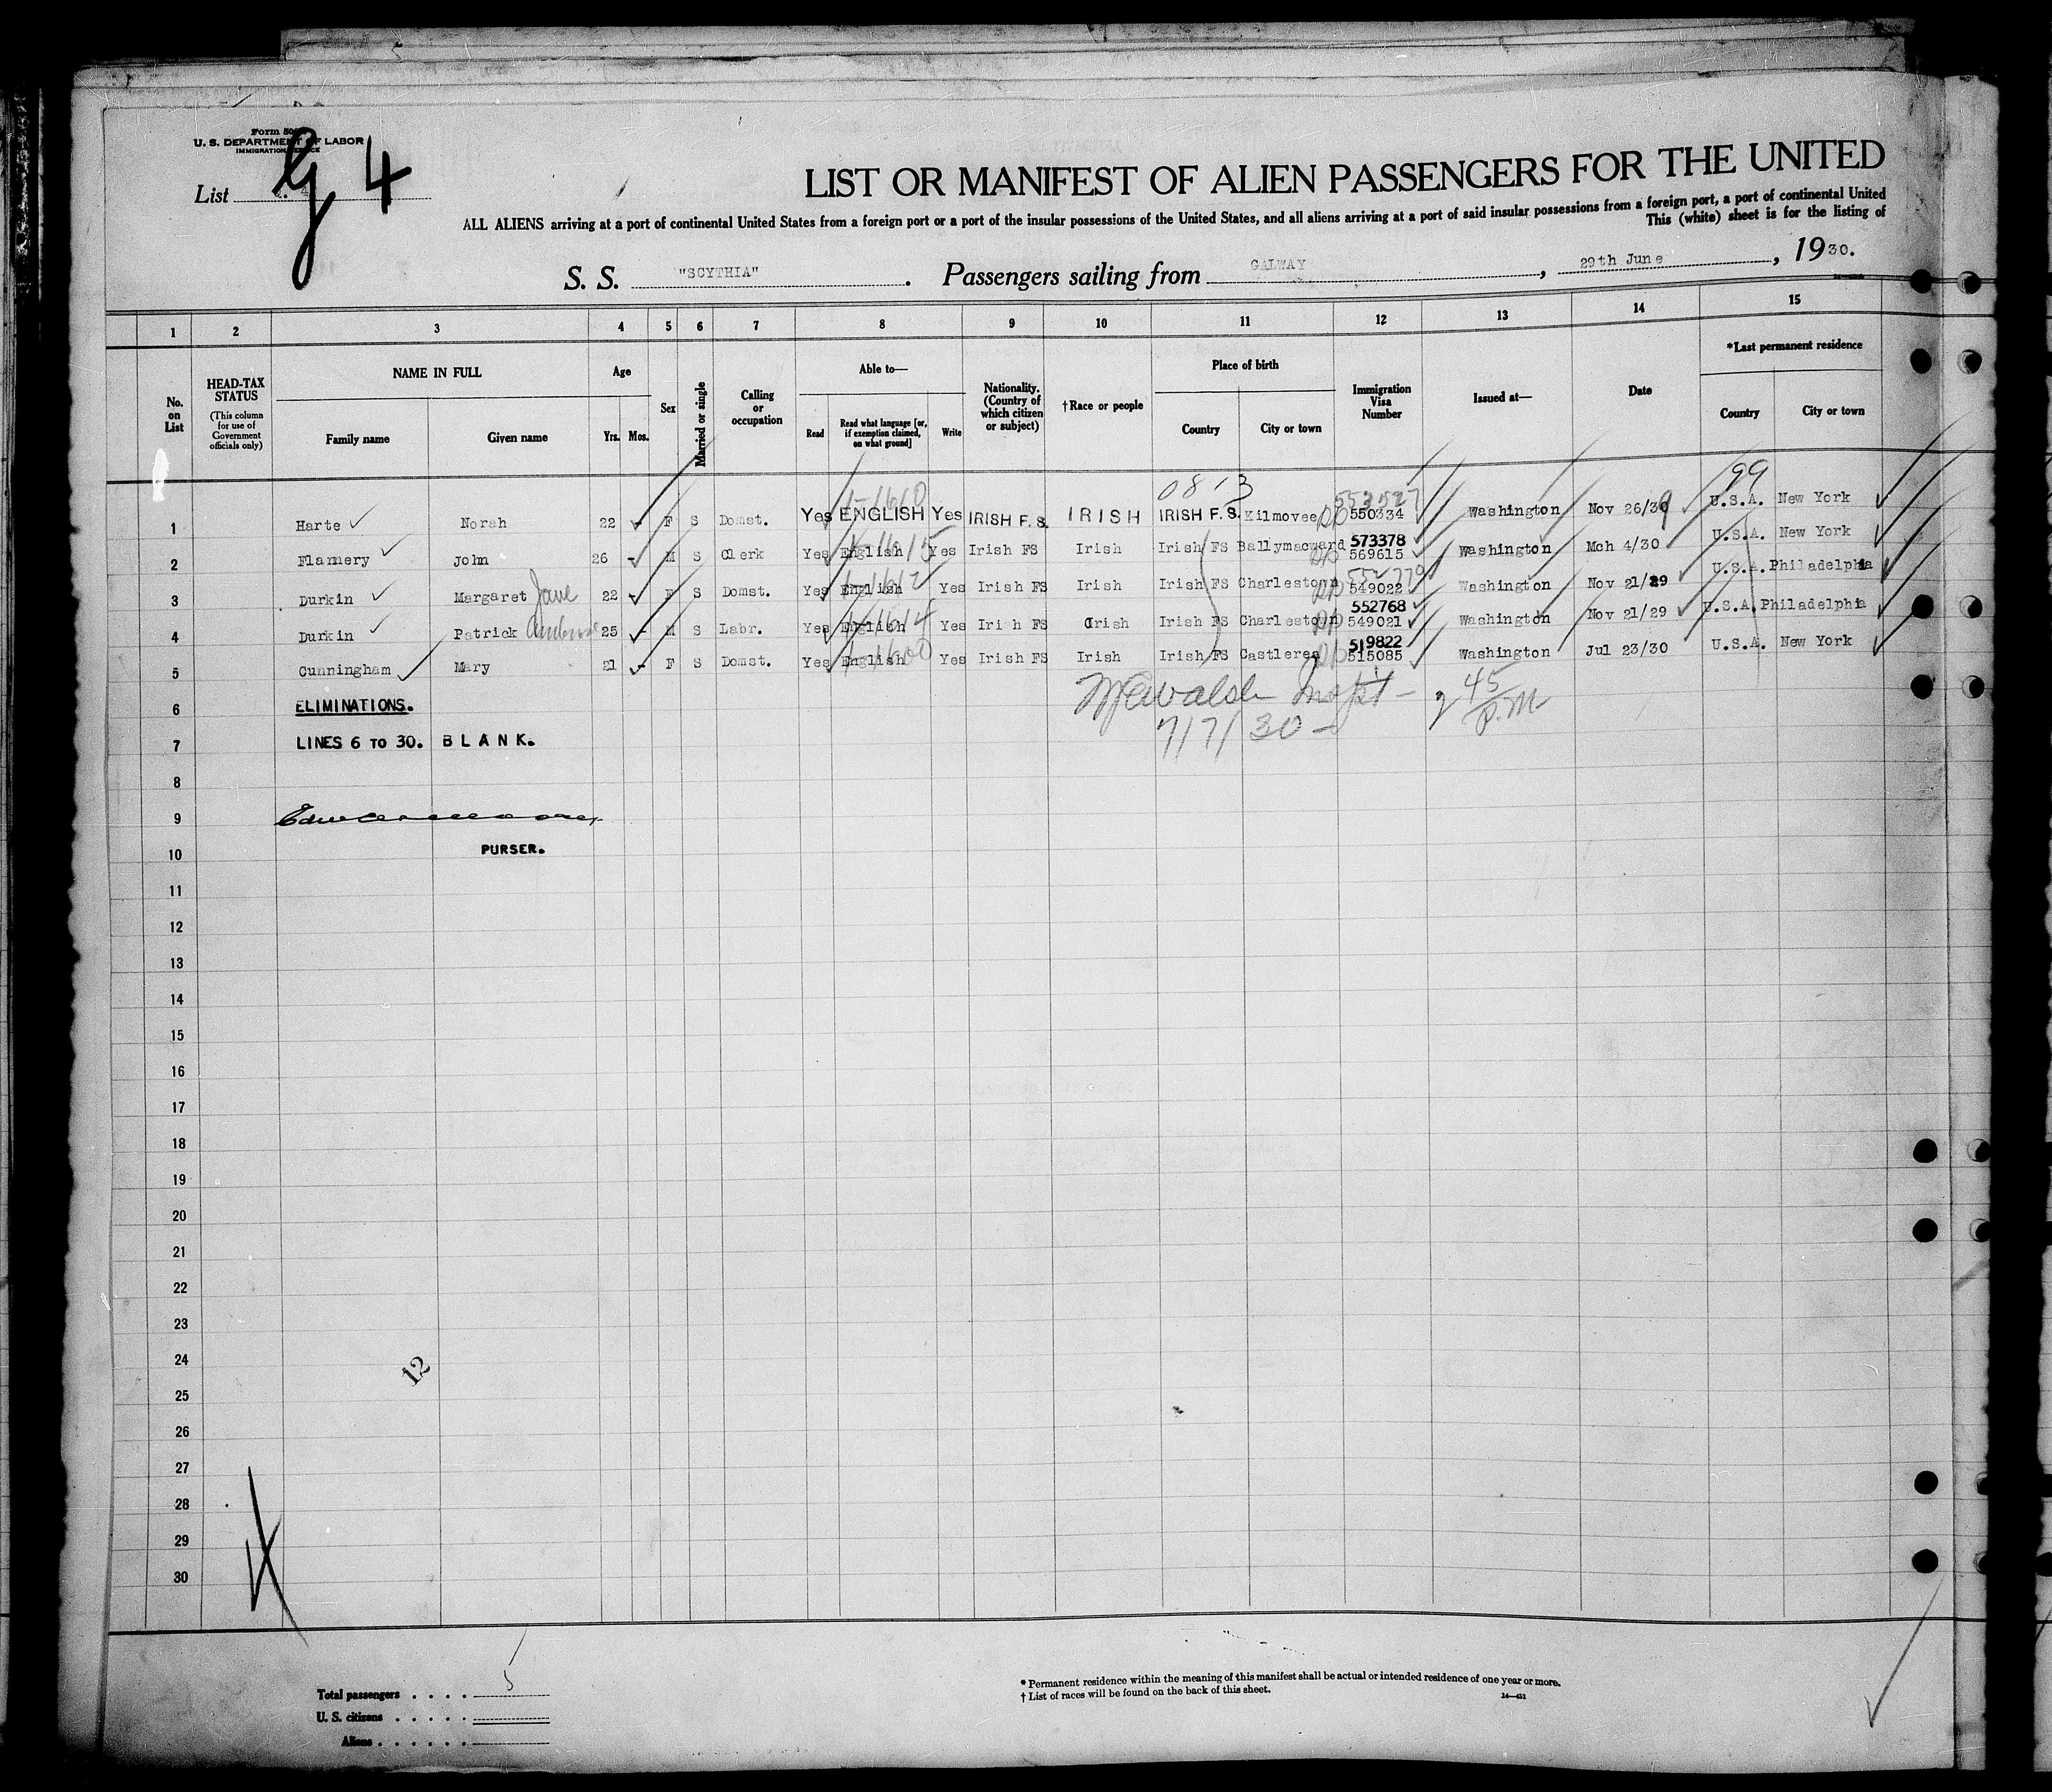 Form 50
U. S. DEPARTMENT OF LABOR
IMMIGRATION SERVICE
List G 4
LIST OR MANIFEST OF ALIEN PASSENGERS FOR THE UNITED
ALL ALIENS arriving at a port of continental United States from a foreign port or a port of the insular possessions of the United States, and all aliens arriving at a port of said insular possessions from a foreign port, a port of continental United
This (white) sheet is for the listing of
S. S. "SCYTHIA". Passengers sailing from GALWAY, 29th June, 1930.
1 2 3 4 5 6 7 8 9 10 11 12 13 14 15
No. on List
HEAD-TAX STATUS (This column for use of Government officials only)
NAME IN FULL
Family name Given name
Age
Yrs. Mos.
Sex
Married or single
Calling or occupation
Able to—
Read Read what language [or, if exemption claimed, on what ground] Write
Nationality. (Country of which citizen or subject)
†Race or people
Place of birth
Country City or town
Immigration Visa Number
Issued at—
Date
*Last permanent residence
Country City or town
0813 99
1-1610 553527
1 Harte Norah 22 - F S Domst. Yes ENGLISH Yes IRISH F.S. IRISH IRISH F.S. Kilmovee 550334 Washington Nov 26/39 U.S.A. New York
1-1615 573378
2 Flannery John 26 - M S Clerk Yes English Yes Irish FS Irish Irish FS Ballymacward 569615 Washington Mch 4/30 U.S.A. New York
1-1612 552770
3 Durkin Margaret Jane 22 - F S Domst. Yes English Yes Irish FS Irish Irish FS Charlestown 549022 Washington Nov 21/29 U.S.A. Philadelphia
1-1614 552768
4 Durkin Patrick Ambrose 25 - M S Labr. Yes English Yes Iri h FS Irish Irish FS Charlestown 549021 Washington Nov 21/29 U.S.A. Philadelphia
1-1600 519822
5 Cunningham Mary 21 - F S Domst. Yes English Yes Irish FS Irish Irish FS Castlerea 515085 Washington Jul 23/30 U.S.A. New York
6 ELIMINATIONS.
Walsh Inspt - 2 45 P.M.
7 LINES 6 TO 30. BLANK.
7/7/30 -
8
9
10 PURSER.
11
12
13
14
15
16
17
18
19
20
21
22
23
24
12
25
26
27
28
29
30
Total passengers . . . . 5
U. S. citizens . . . . .
Aliens . . . . . .
* Permanent residence within the meaning of this manifest shall be actual or intended residence of one year or more.
† List of races will be found on the back of this sheet.
14—451